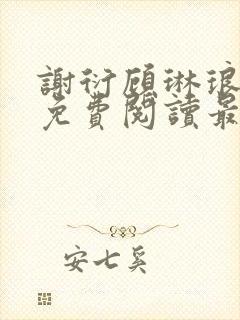 謝衍顧琳琅
免費閱讀最
安七奚